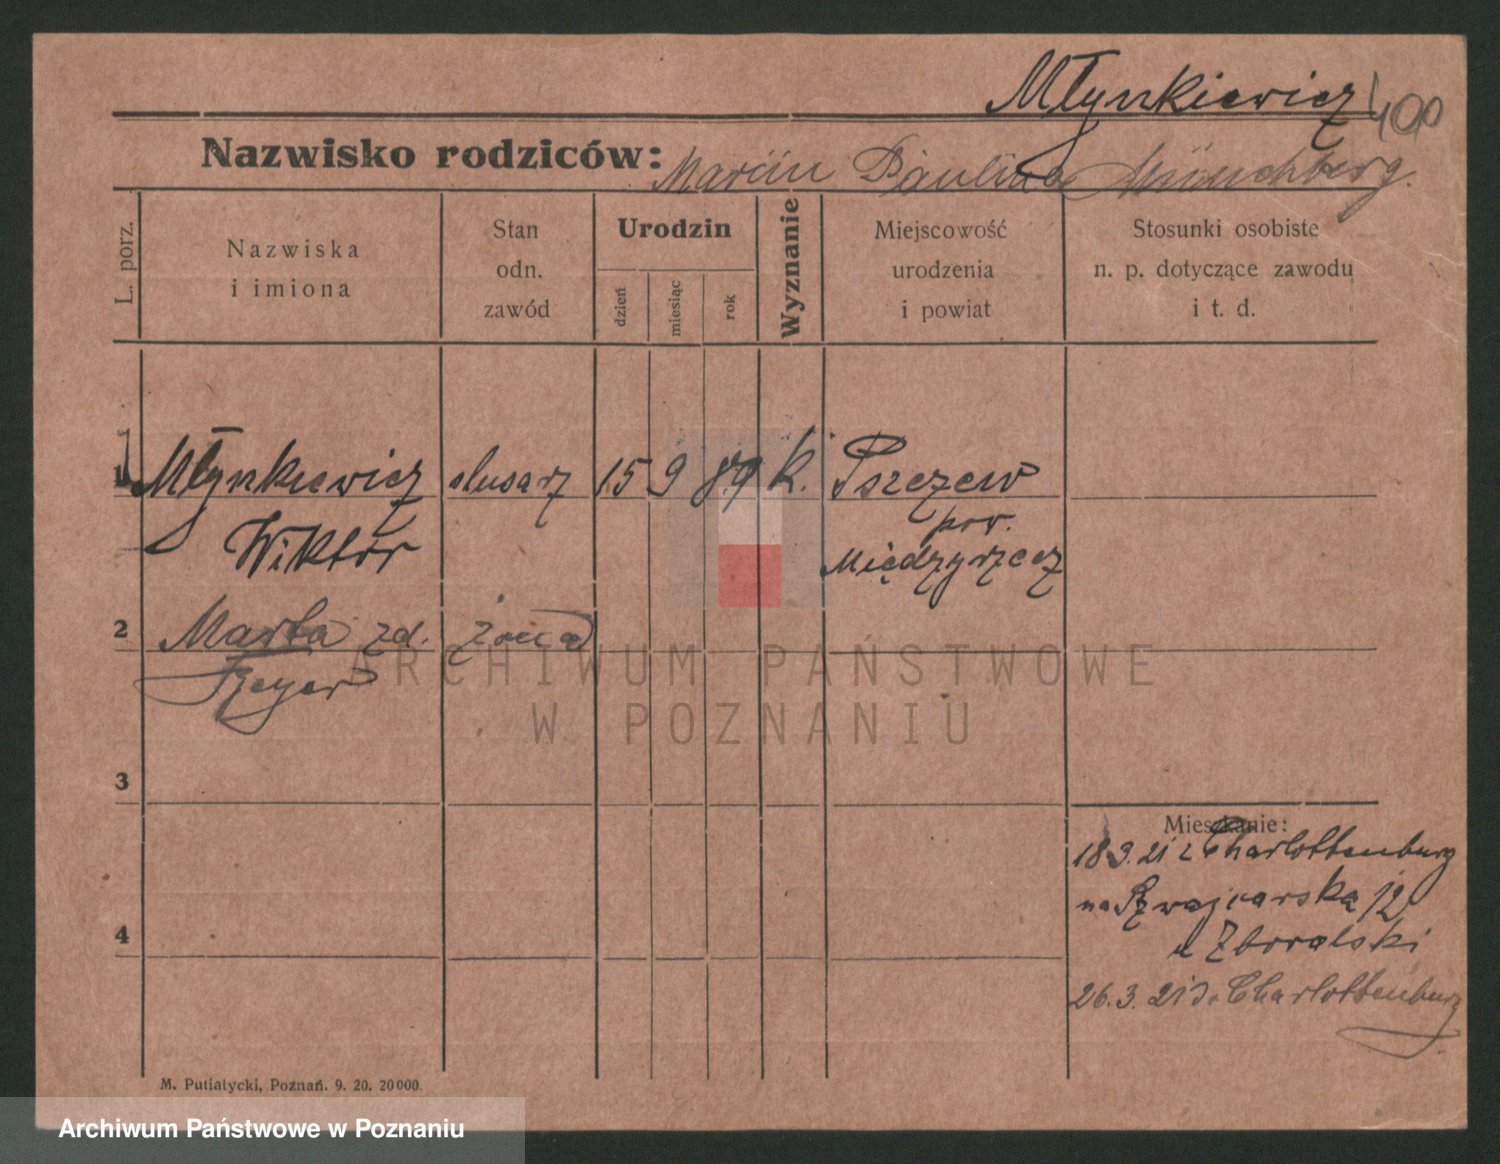 Młynkiewicz
400
Nazwisko rodziców: Marcin Paulina Münchberg.
L. porz.
Nazwiska
i imiona
Stan
odn.
zawód
Urodzin
dzień
miesiąc
rok
Wyznanie
Miejscowość
urodzenia
i powiat
Stosunki osobiste
n. p. dotyczące zawodu
i t. d.
1 Młynkiewicz slusarz 15 9 89 k. Pszczew
Wiktor
pow.
Międzyrzecz
2 Marta zd. żona
ARCHIWUM PAŃSTWOWE
W POZNANIU
3
Mieszkanie:
18 3. 21 z Charlottenburg
na Szwajcarską 12
u Zboralski
4
26. 3. 21 do Charlottenburg
M. Putiatycki, Poznań. 9. 20. 20000.
Archiwum Państwowe w Poznaniu